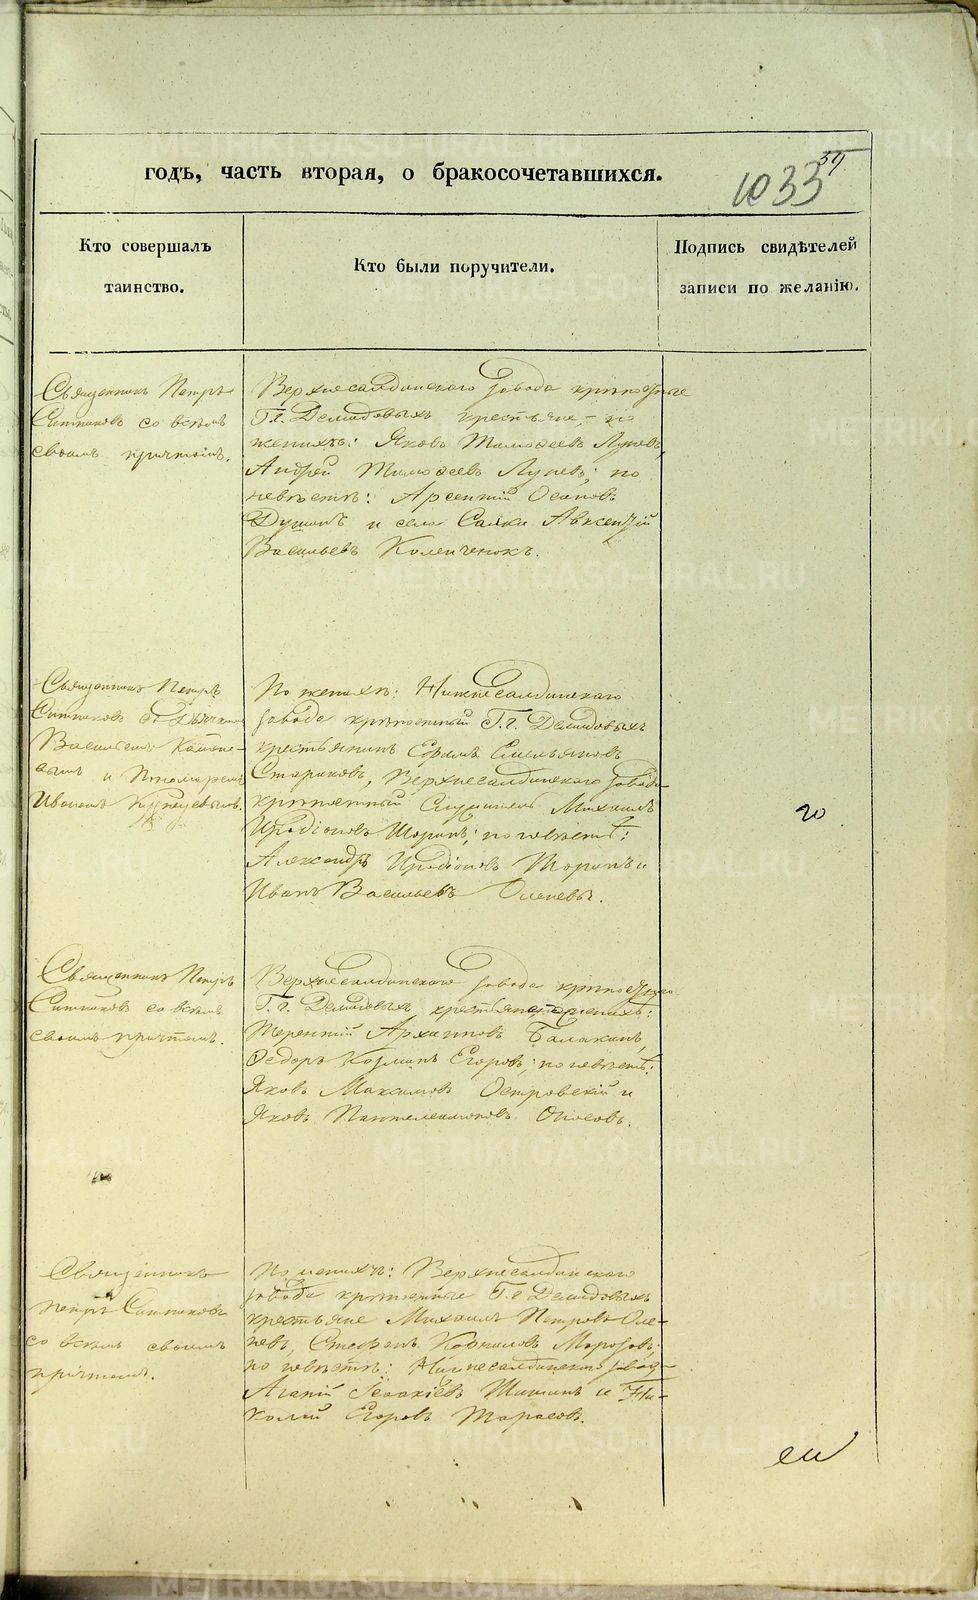 годъ, часть вторая, о бракосочетавшихся.
1033
39
Кто совершалъ
таинство.
Кто были поручители.
Подпись свидѣтелей
записи по желанію.
Священникъ Петръ
Ситниковъ со всѣмъ
своимъ причтомъ.
Верхнесалдинскаго завода крѣпостные
Г.г. Демидовыхъ крестьяне, по
женихѣ: Яковъ Тимоѳеевъ Лупевъ,
Андрей Тимоѳеевъ Лупевъ; по
невѣстѣ: Арсентій Осиповъ
и села Салки Авксентій
Васильевъ Коленченокъ.
Священникъ Петръ
Ситниковъ съ Дьячкомъ
Васильемъ
и Пономаремъ
Иваномъ
По женихѣ: Нижнесалдинскаго
завода крѣпостный Г.г. Демидовыхъ
крестьянинъ Ефимъ Емельяновъ
Стариковъ, Верхнесалдинскаго завода
крѣпостный Служитель Михаилъ
Иродіоновъ Шоринъ; по невѣстѣ:
Александръ Иродіоновъ Шоринъ и
Иванъ Васильевъ Оленевъ.
Священникъ Петръ
Ситниковъ со всѣмъ
своимъ причтомъ.
Верхнесалдинскаго завода крѣпостные
Г.г. Демидовыхъ крестьяне, по женихѣ:
Терентій Архиповъ Балакинъ,
Ѳедоръ Козминъ Егоровъ; по невѣстѣ:
Яковъ Максимовъ Островскій и
Яковъ Пантелеимоновъ Оносовъ.
Священникъ
Петръ Ситниковъ
со всѣмъ своимъ
причтомъ.
По женихѣ: Верхнесалдинскаго
завода крѣпостные Г.г. Демидовыхъ
крестьяне Михаилъ Петровъ Оле-
невъ, Степанъ Корниловъ Морозовъ;
по невѣстѣ: Нижнесалдинскаго завода
Агапій Исаакіевъ Шишинъ и Ни-
колай Егоровъ Тарасовъ.
METRIKI.GASO-URAL.RU